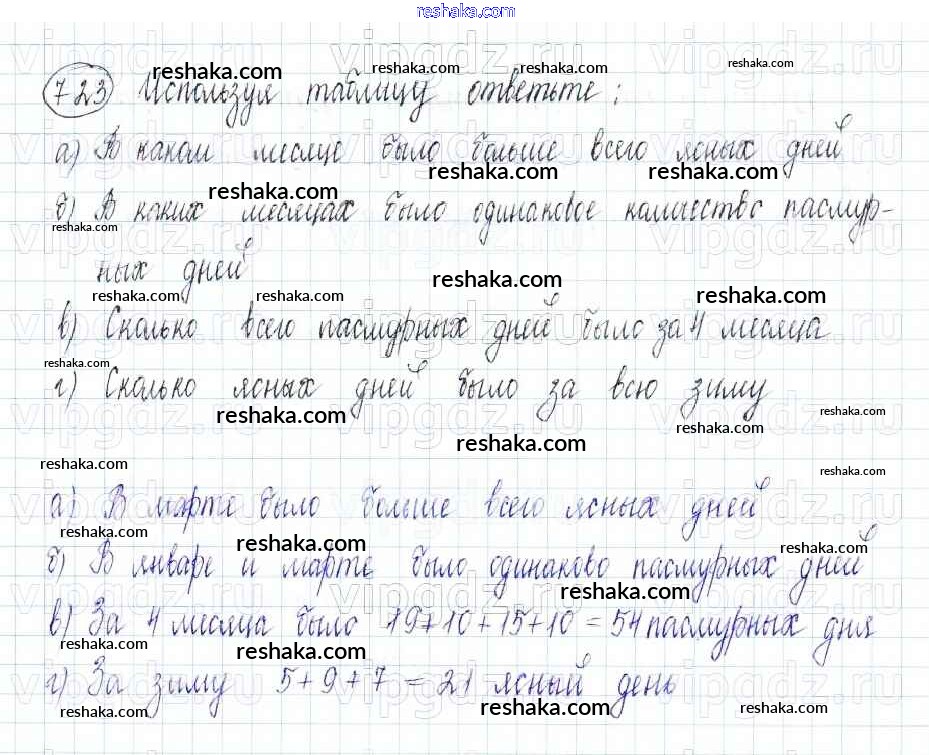 reshaka.com
723 Используя таблицу ответьте:
а) В каком месяце было больше всего ясных дней
б) В каких месяцах было одинаковое количество пасмур-
ных дней
в) Сколько всего пасмурных дней было за 4 месяца
г) Сколько ясных дней было за всю зиму
а) В марте было больше всего ясных дней
б) В январе и марте было одинаково пасмурных дней
в) За 4 месяца было 19+10+15+10=54 пасмурных дня
г) За зиму 5+9+7=21 ясный день